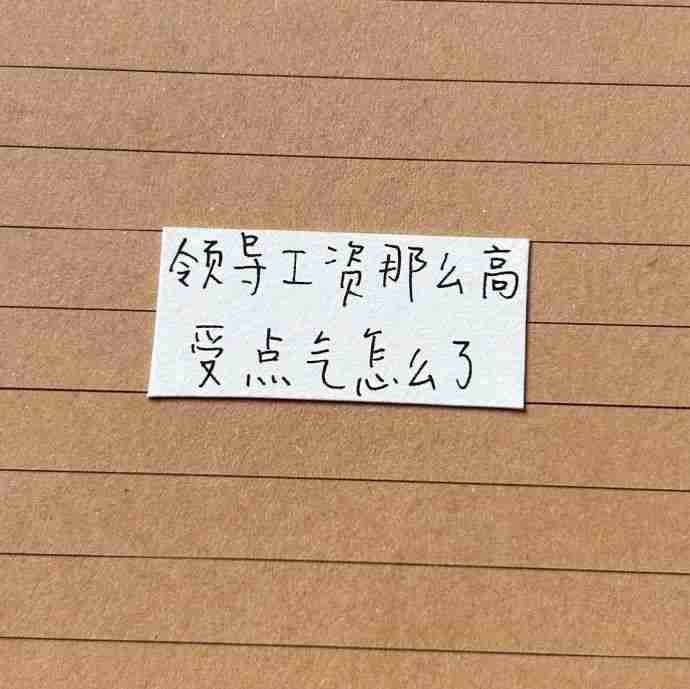 领导工资那么高
受点气怎么了